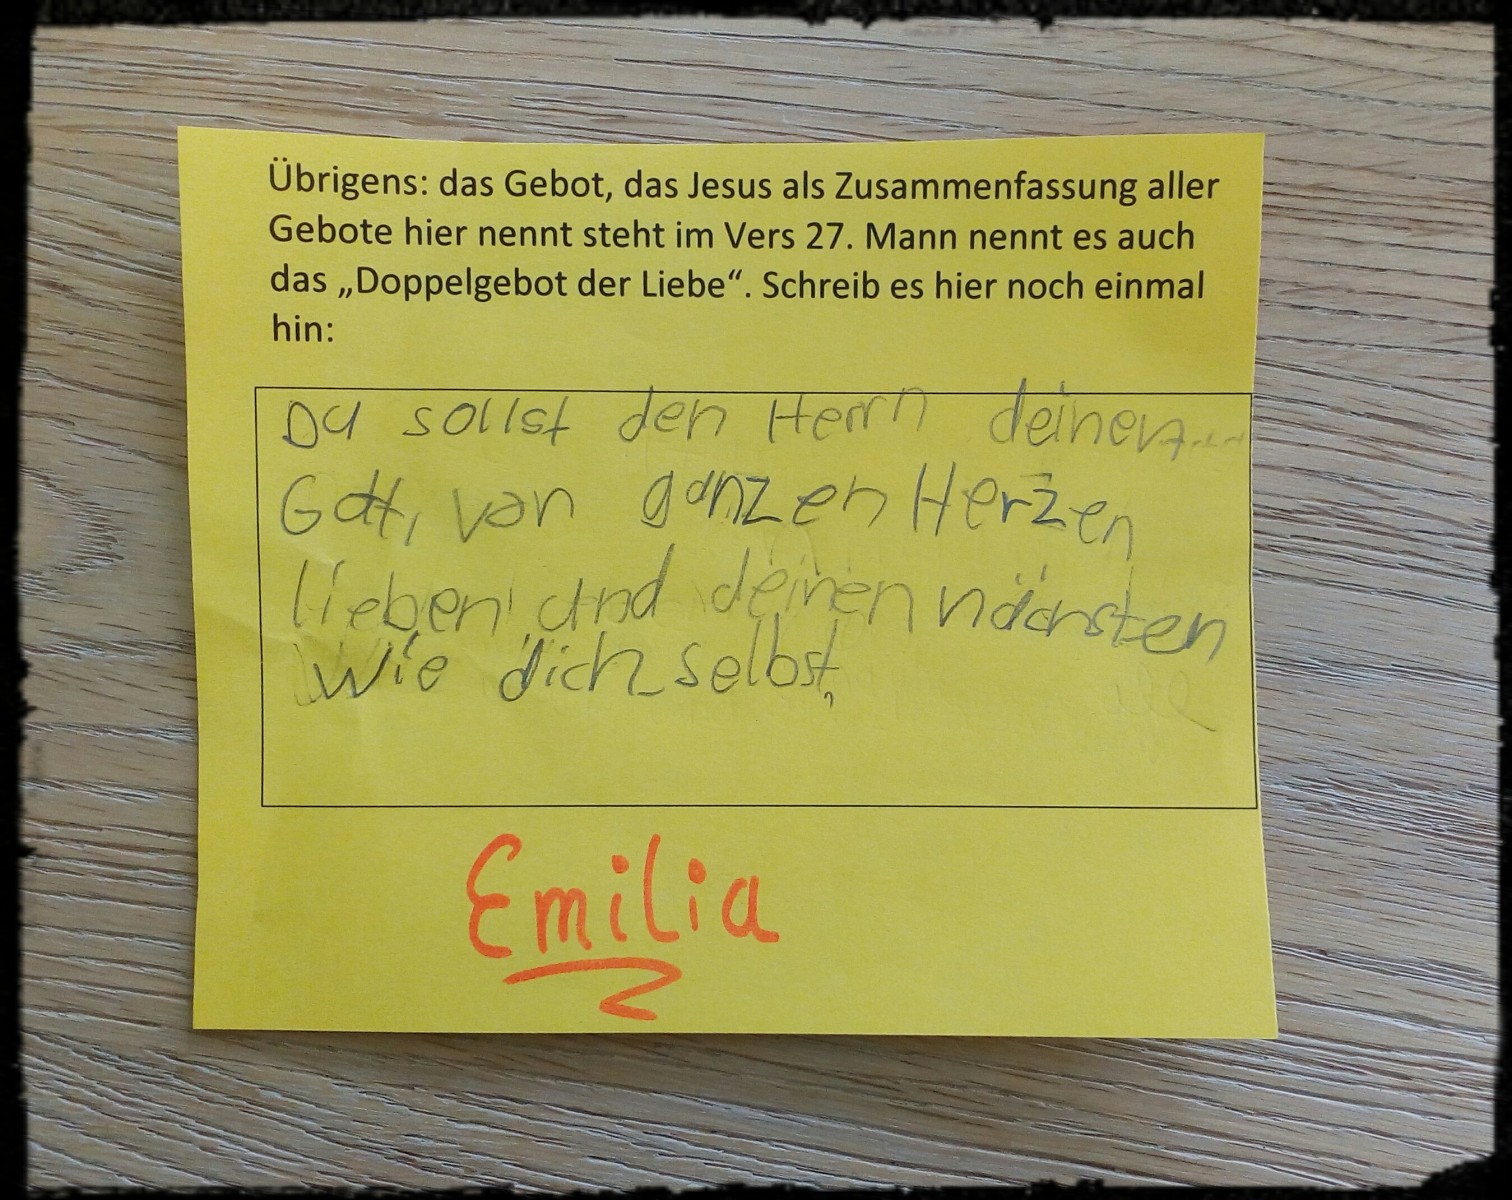 Übrigens: das Gebot, das Jesus als Zusammenfassung aller
Gebote hier nennt steht im Vers 27. Mann nennt es auch
das „Doppelgebot der Liebe“. Schreib es hier noch einmal
hin:
Du sollst den Herrn deinen
Gott, von ganzen Herzen
lieben, und deinen nächsten
wie dich selbst,
Emilia